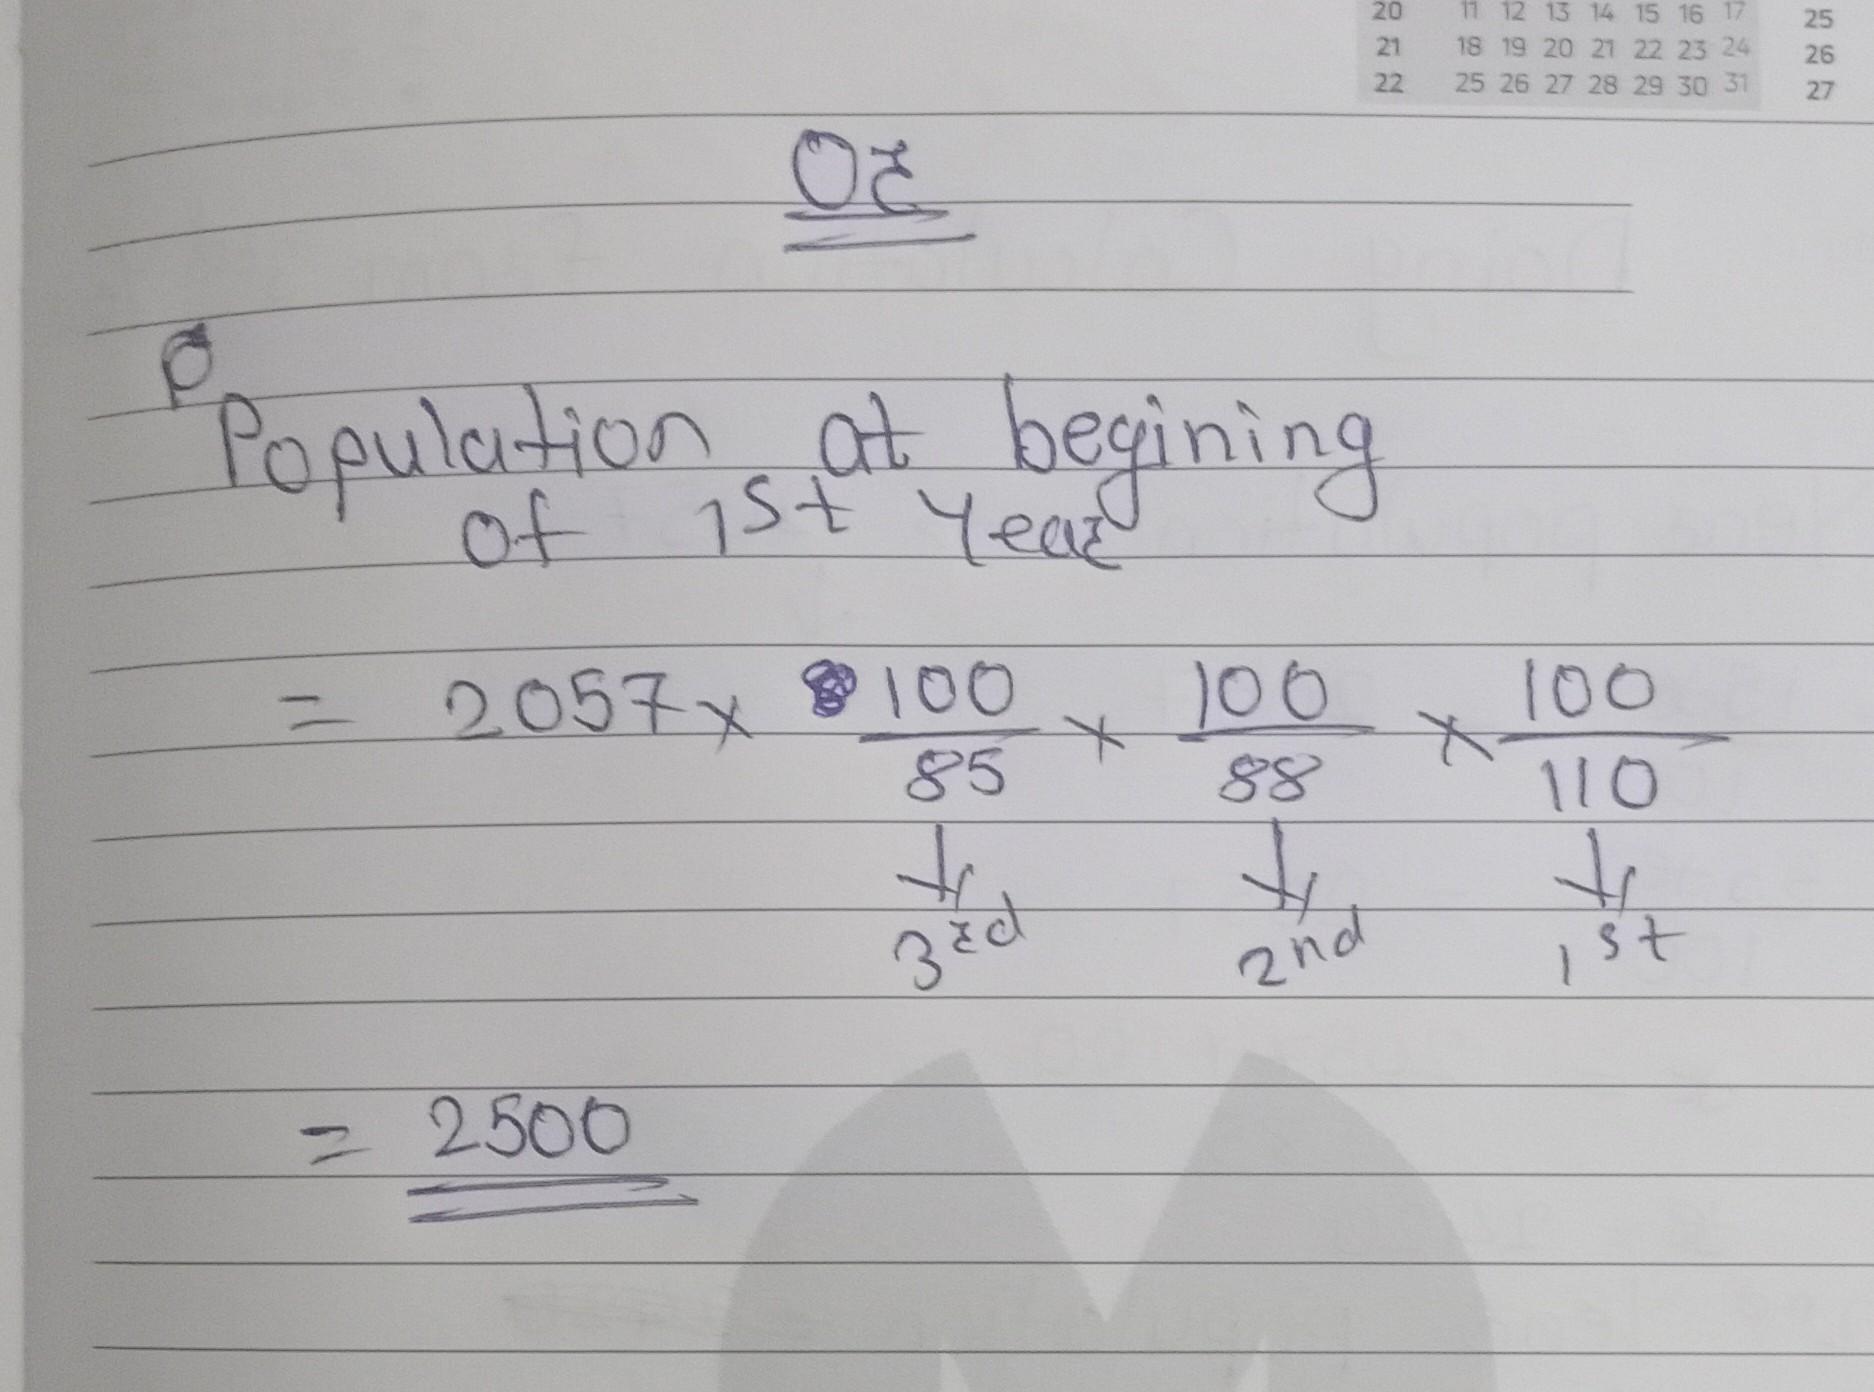 20 11 12 13 14 15 16 17 25
21 18 19 20 21 22 23 24 26
22 25 26 27 28 29 30 31 27
Or
P
Population at begining
of 1st Year
= 2057 × 100/85 × 100/88 × 100/110
3rd 2nd 1st
= 2500